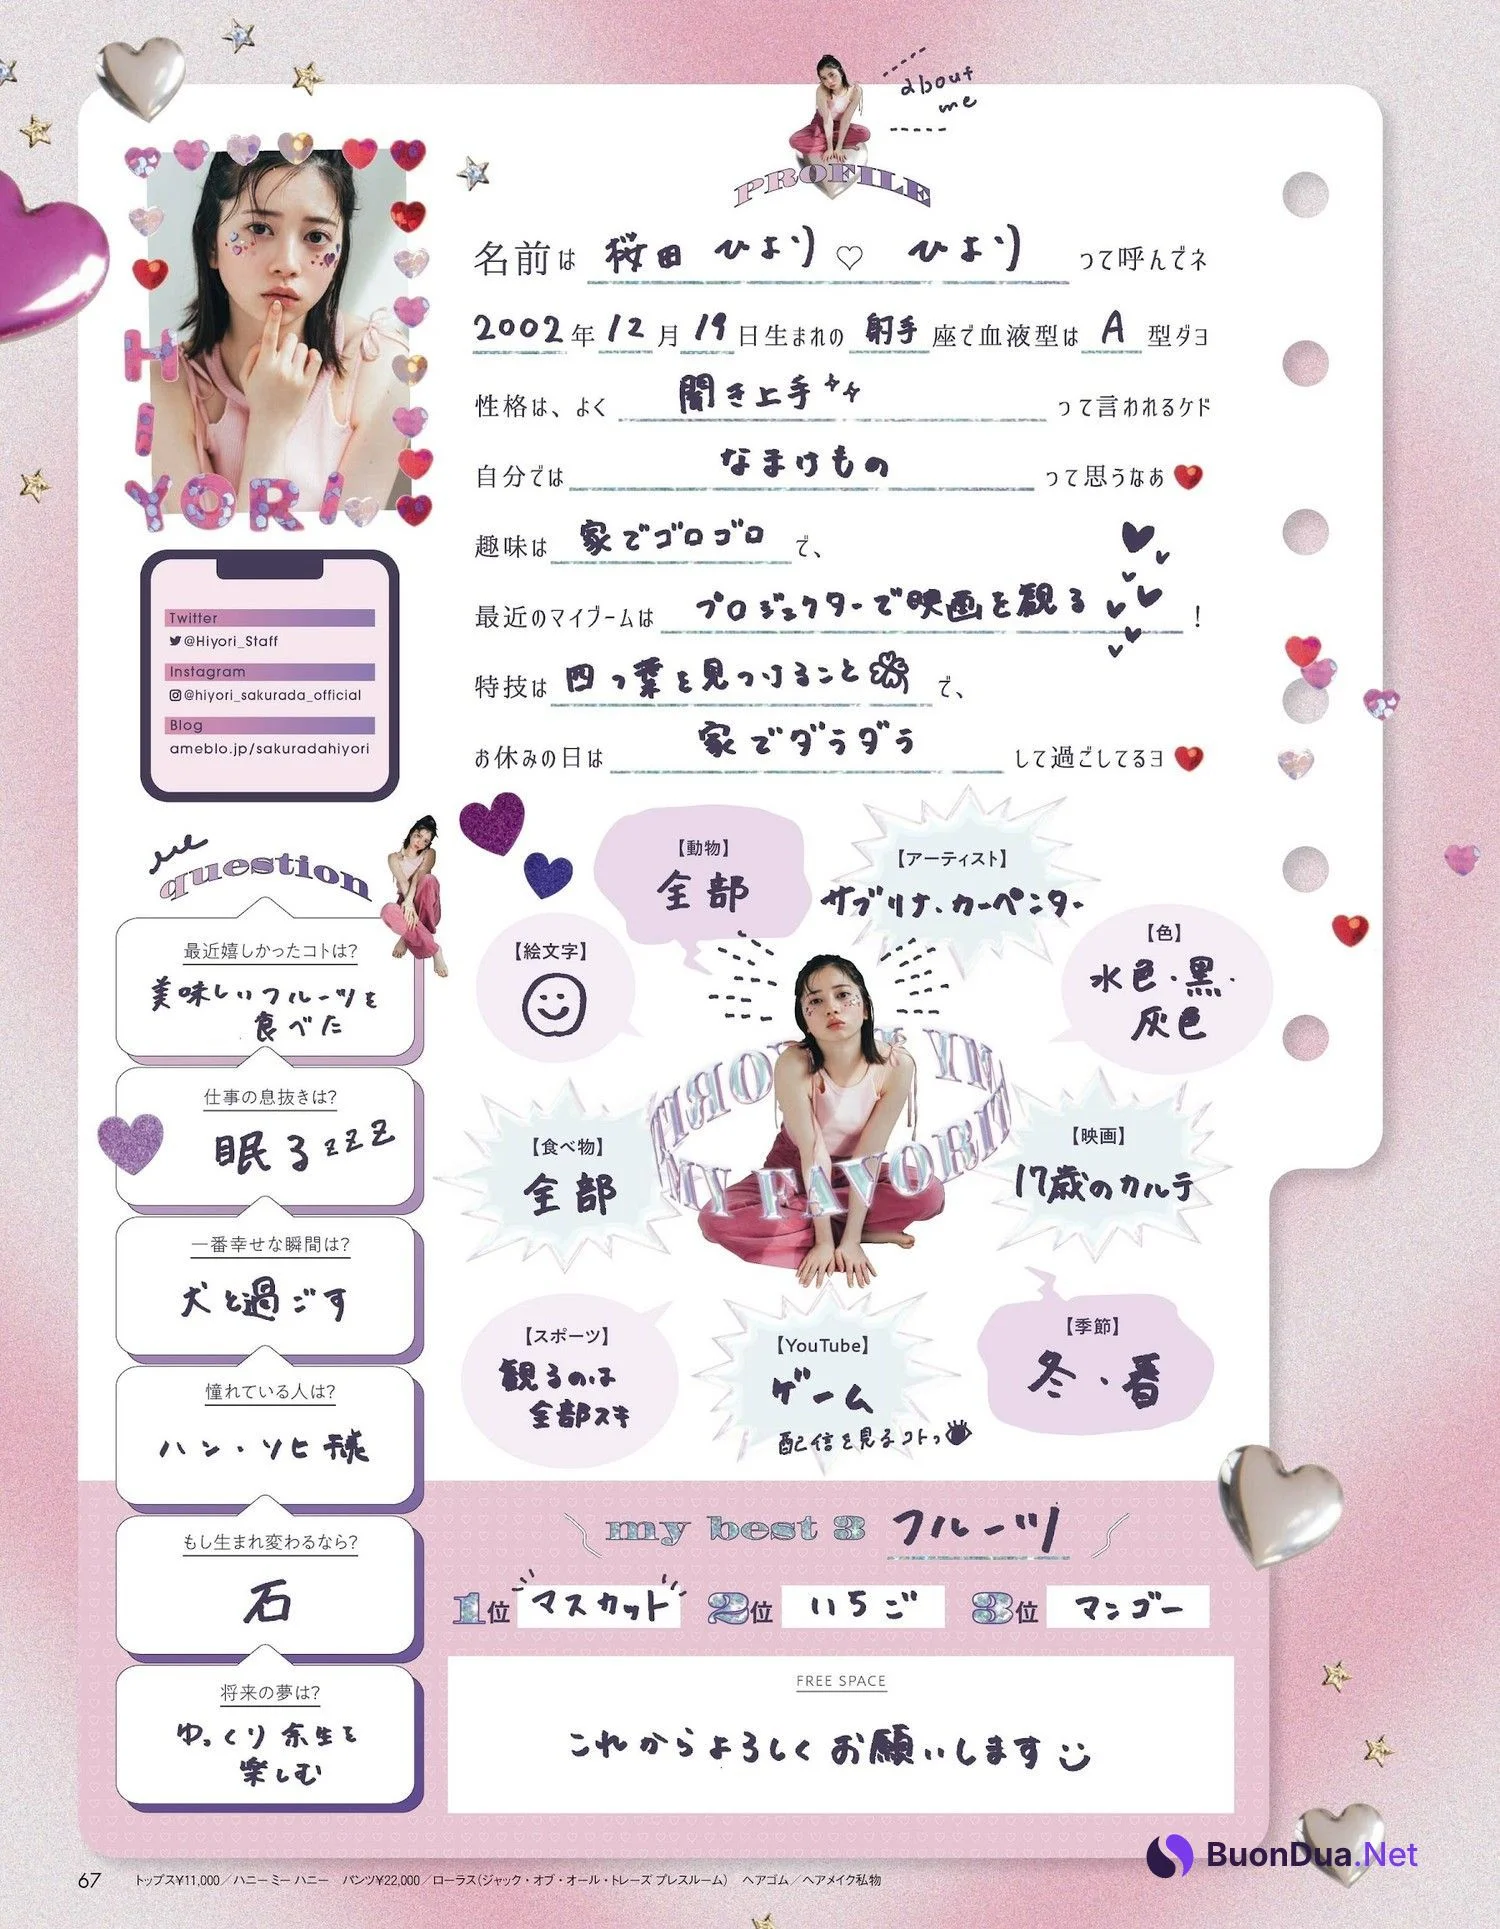 about
me
PROFILE
名前は 桜田 ひより♡ ひより って呼んでネ
2002年12月19日生まれの射手座で血液型はA型ダヨ
性格は、よく 聞き上手 って言われるケド
自分では なまけもの って思うなあ
趣味は 家でゴロゴロ で、
最近のマイブームは プロジェクターで映画を観る !
特技は 四つ葉を見つけること で、
お休みの日は 家でダラダラ して過ごしてるヨ
HIYORI
Twitter
@Hiyori_Staff
Instagram
@hiyori_sakurada_official
Blog
ameblo.jp/sakuradahiyori
question
最近嬉しかったコトは?
美味しいフルーツを
食べた
仕事の息抜きは?
眠るzzz
一番幸せな瞬間は?
犬と過ごす
憧れている人は?
ハン・ソヒ様
もし生まれ変わるなら?
石
将来の夢は?
ゆっくり余生を
楽しむ
【動物】
全部
【アーティスト】
サブリナ・カーペンター
【絵文字】
【色】
水色・黒・
灰色
【食べ物】
全部
MY FAVORITE
【映画】
17歳のカルテ
【スポーツ】
観るのは
全部スキ
【YouTube】
ゲーム
配信を見るコトっ
【季節】
冬・春
my best 3 フルーツ
1位 マスカット 2位 いちご 3位 マンゴー
FREE SPACE
これからよろしくお願いします
67
トップス¥11,000/ハニー ミー ハニー パンツ¥22,000/ローラス(ジャック・オブ・オール・トレーズ プレスルーム) ヘアゴム/ヘアメイク私物
BuonDua.Net